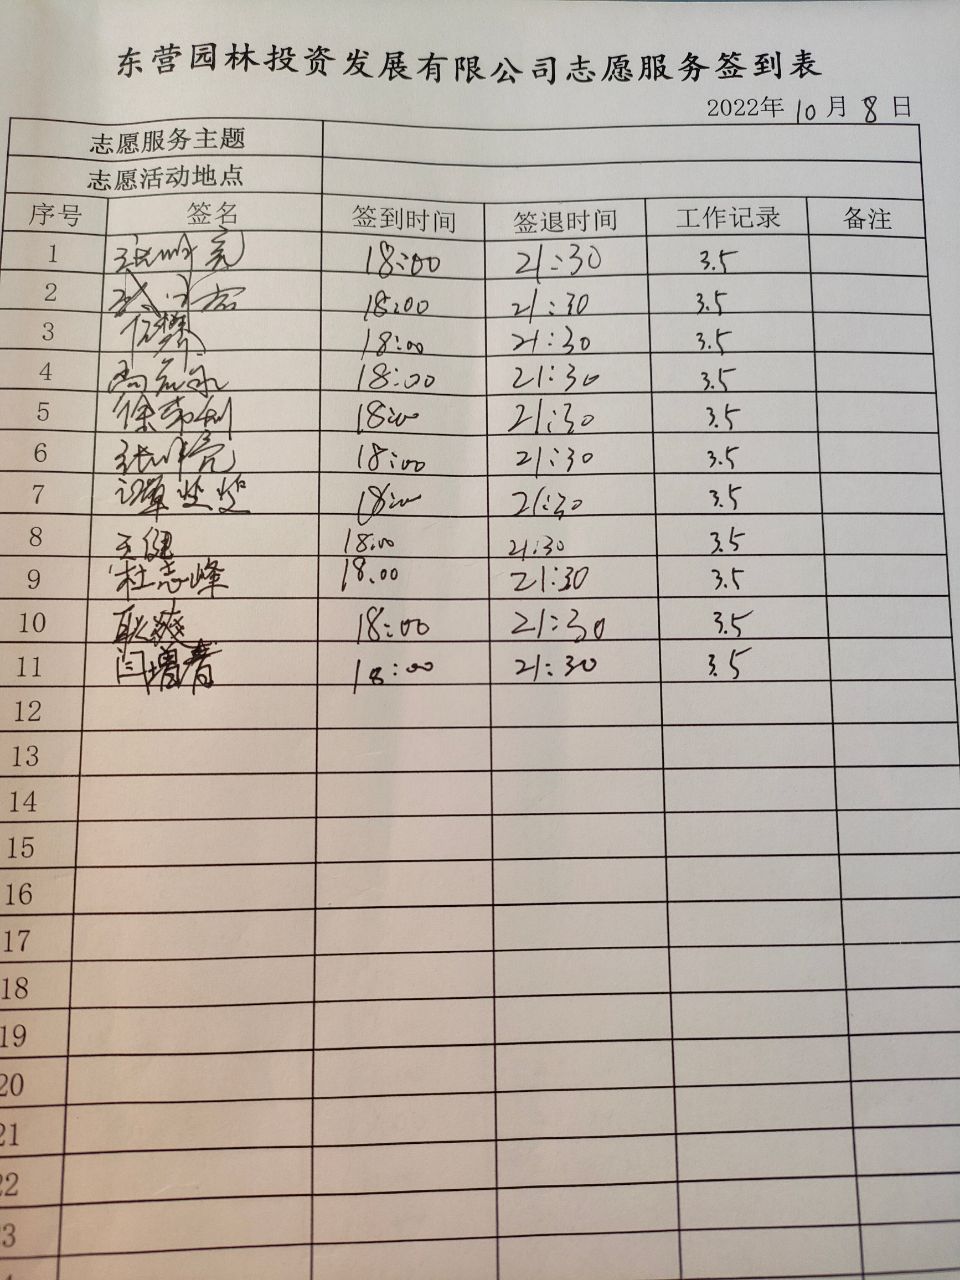 东营园林投资发展有限公司志愿服务签到表
2022年 10 月 8 日
志愿服务主题
志愿活动地点
序号 签名 签到时间 签退时间 工作记录 备注
1 18:00 21:30 3.5
2 18:00 21:30 3.5
3 18:00 21:30 3.5
4 18:00 21:30 3.5
5 18:00 21:30 3.5
6 18:00 21:30 3.5
7 18:00 21:30 3.5
8 王健 18:00 21:30 3.5
9 杜志峰 18.00 21:30 3.5
10 耿爽 18:00 21:30 3.5
11 闫增青 18:00 21:30 3.5
12
13
14
15
16
17
18
19
20
21
22
23